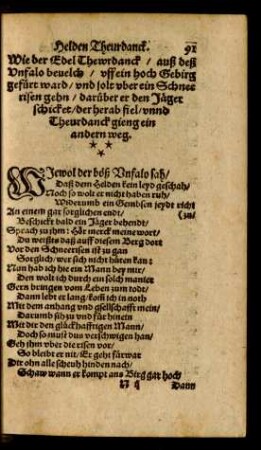 Helden Theurdanck. 91
Wie der Edel Thewrdanck / auß deß
Vnfalo beuelch / vff ein hoch Gebirg
gefürt ward / vnd solt vber ein Schnee
risen gehn / darüber er den Jäger
schicket / der herab fiel / vnnd
Theurdanck gieng ein
andern weg.
WJewol der böß Vnfalo sah /
Daß dem Helden kein leyd geschah /
Noch so wolt er nicht haben ruh /
Widerumb ein Gembsen jeydt richt
An einem gar sorglichen endt / (zu /
Beschickt bald ein Jäger behendt /
Sprach zu jhm: Hör merck meine wort /
Du weißts daß auff diesem Berg dort
Vor den Schneerisen ist zu gan
Sorglich / wer sich nicht hüten kan:
Nun hab ich hie ein Mann bey mir /
Den wolt ich durch ein solch manier
Gern bringen vom Leben zum todt /
Dann lebt er lang / kost ich in noth
Mit dem anhang vnd gsellschafft mein /
Darumb sih zu vnd für hinein
Mit dir den glückhafftigen Mann /
Doch so mustu das verschwigen han /
Geh jhm vber die risen vor /
So bleibt er nit / Er geht fürwar
Dir ohn alle scheuh hinden nach /
Schaw wann er kompt ans Birg gar hoch
Dann